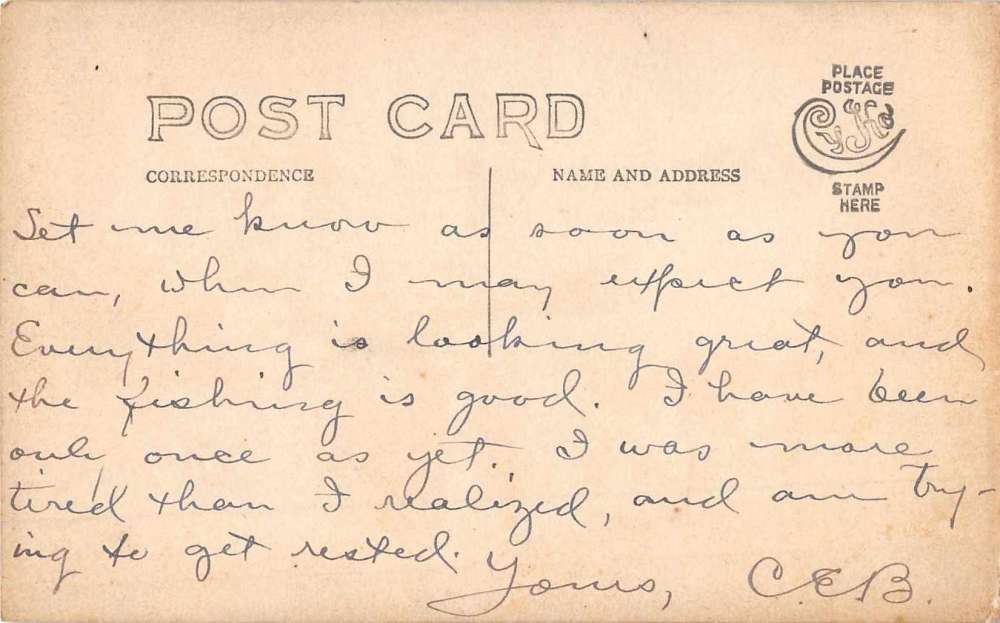 PLACE
POSTAGE
POST CARD
CORRESPONDENCE
NAME AND ADDRESS
STAMP
HERE
Let me know as soon as you
can, when I may expect you.
Everything is looking great, and
the fishing is good. I have been
only once as yet. I was more
tired than I realized, and am try-
ing to get rested.
Yours, C.E.B.